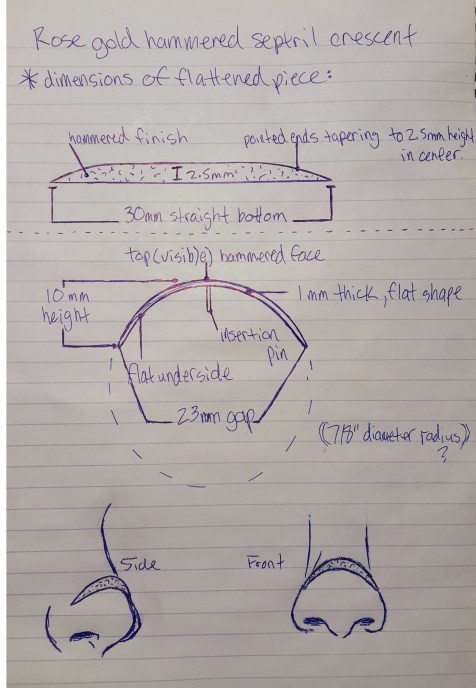 Rose gold hammered septril crescent
* dimensions of flattened piece:
hammered finish
pointed ends tapering to 2.5mm height
in center.
2.5mm
30mm straight bottom
top (visible) hammered face
10mm
height
1mm thick, flat shape
insertion
pin
flat underside
23mm gap
(7/8" diameter radius)
?
Side
Front